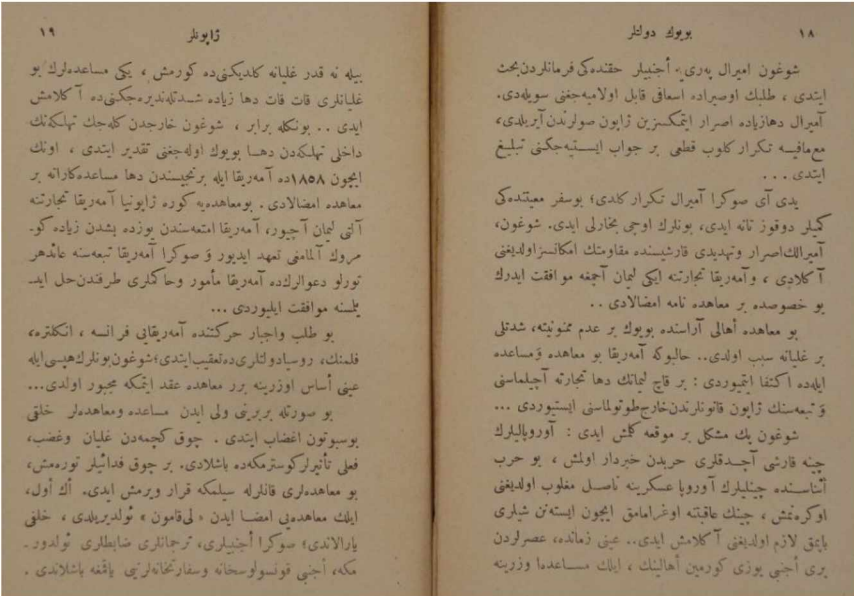 ١٨
بويوك دولتلر
شوغون اميرال په‌رى‌يه أجنبيلر حقنده‌كى فرمانلردن بحث
ايتدى ، طلبك اوصيراده اسعافى قابل اولاميه‌جغنى سويله‌دى.
آميرال دهازياده اصرار ايتمكسزين ژاپون صولرندن آيريلدى،
مع‌مافيه تكرار كلوب قطعى بر جواب ايسته‌يه‌جكنى تبليغ
ايتدى ...
يدى آى صوكرا آميرال تكرار كلدى؛ بوسفر معيتنده‌كى
كميلر دوقوز تانه ايدى، بونلرك اوچى بخارلى ايدى. شوغون،
آميرالك اصرار وتهديدى قارشيسنده مقاومتك امكانسز اولديغنى
آكلادى ، وآمه‌ريقا تجارتنه ايكى ليمان آچمغه موافقت ايدرك
بو خصوصده بر معاهده نامه امضالادى ..
بو معاهده أهالى آراسنده بويوك بر عدم ممنونيته، شدتلى
بر غليانه سبب اولدى.. حالبوكه آمه‌ريقا بو معاهده وٓ مساعده
ايله‌ده اكتفا ايتميوردى : بر قاچ ليمانك دها تجارته آچيلماسنى
وٓ تبعه‌سنك ژاپون قانونلرندن خارج طوتولماسنى ايستيوردى ...
شوغون پك مشكل بر موقعه كلمش ايدى : آوروپاليلرك
چينه قارشى آچدقلرى حربدن خبردار اولمش ، بو حرب
أثناسنده چينليلرك آوروپا عسكرينه ناصل مغلوب اولديغنى
اوكره‌نمش ، چينك عاقبتنه اوغرامامق ايچون ايسته‌نن شيلرى
ياپمق لازم اولديغنى آكلامش ايدى.. عينى زمانده، عصرلردن
برى أجنبى يوزى كورمين أهالينك ، ايلك مساعده‌ا وزرينه
ژاپونلر
١٩
بيله نه قدر غليانه كلديكنى‌ده كورمش ، يكى مساعده‌لرك بو
غليانلرى قات قات دها زياده شدتله‌نديره‌جكنى‌ده آكلامش
ايدى .. بونكله برابر ، شوغون خارجدن كله‌جك تهلكه‌نك
داخلى تهلكه‌دن دها بويوك اوله‌جغنى تقدير ايتدى ، اونك
ايچون ١٨٥٨ده آمه‌ريقا ايله برنجيسندن دها مساعده‌كارانه بر
معاهده امضالادى . بومعاهده‌يه كوره ژاپونيا آمه‌ريقا تجارتنه
آلتى ليمان آچيور، آمه‌ريقا امتعه‌سندن يوزده بشدن زياده كو-
مروك آلمامغى تعهد ايديور وٓ صوكرا آمه‌ريقا تبعه‌سنه عائدهر
تورلو دعوالرك‌ده آمه‌ريقا مأمور وحاكملرى طرفندن حل ايد-
يلمسنه موافقت ايليوردى ...
بو طلب واجبار حركتنده آمه‌ريقايى فرانسه ، انكلتره،
فلمنك، روسيا دولتلرى‌ده تعقيب ايتدى؛ شوغون بونلرك هپسى ايله
عينى أساس اوزرينه برر معاهده عقد ايتمكه مجبور اولدى...
بو صورتله بربرينى ولى ايدن مساعده ومعاهده‌لر خلقى
بوسبوتون اغضاب ايتدى . چوق كچمه‌دن غليان وغضب،
فعلى تأثيرلر كوسترمكه‌ده باشلادى. بر چوق فدائيلر توره‌مش،
بو معاهده‌لرى قانلرله سيلمكه قرار ويرمش ايدى. أك أول،
ايلك معاهده‌يى امضا ايدن « لى‌قامون » ئولديريلدى ، خلفى
يارالاندى؛ صوكرا أجنبيلرى، ترجمانلرى ضابطلرى ئولدور-
مكه، أجنبى قونسولوسخانه وسفارتخانه‌لرنى ياقمغه باشلاندى .